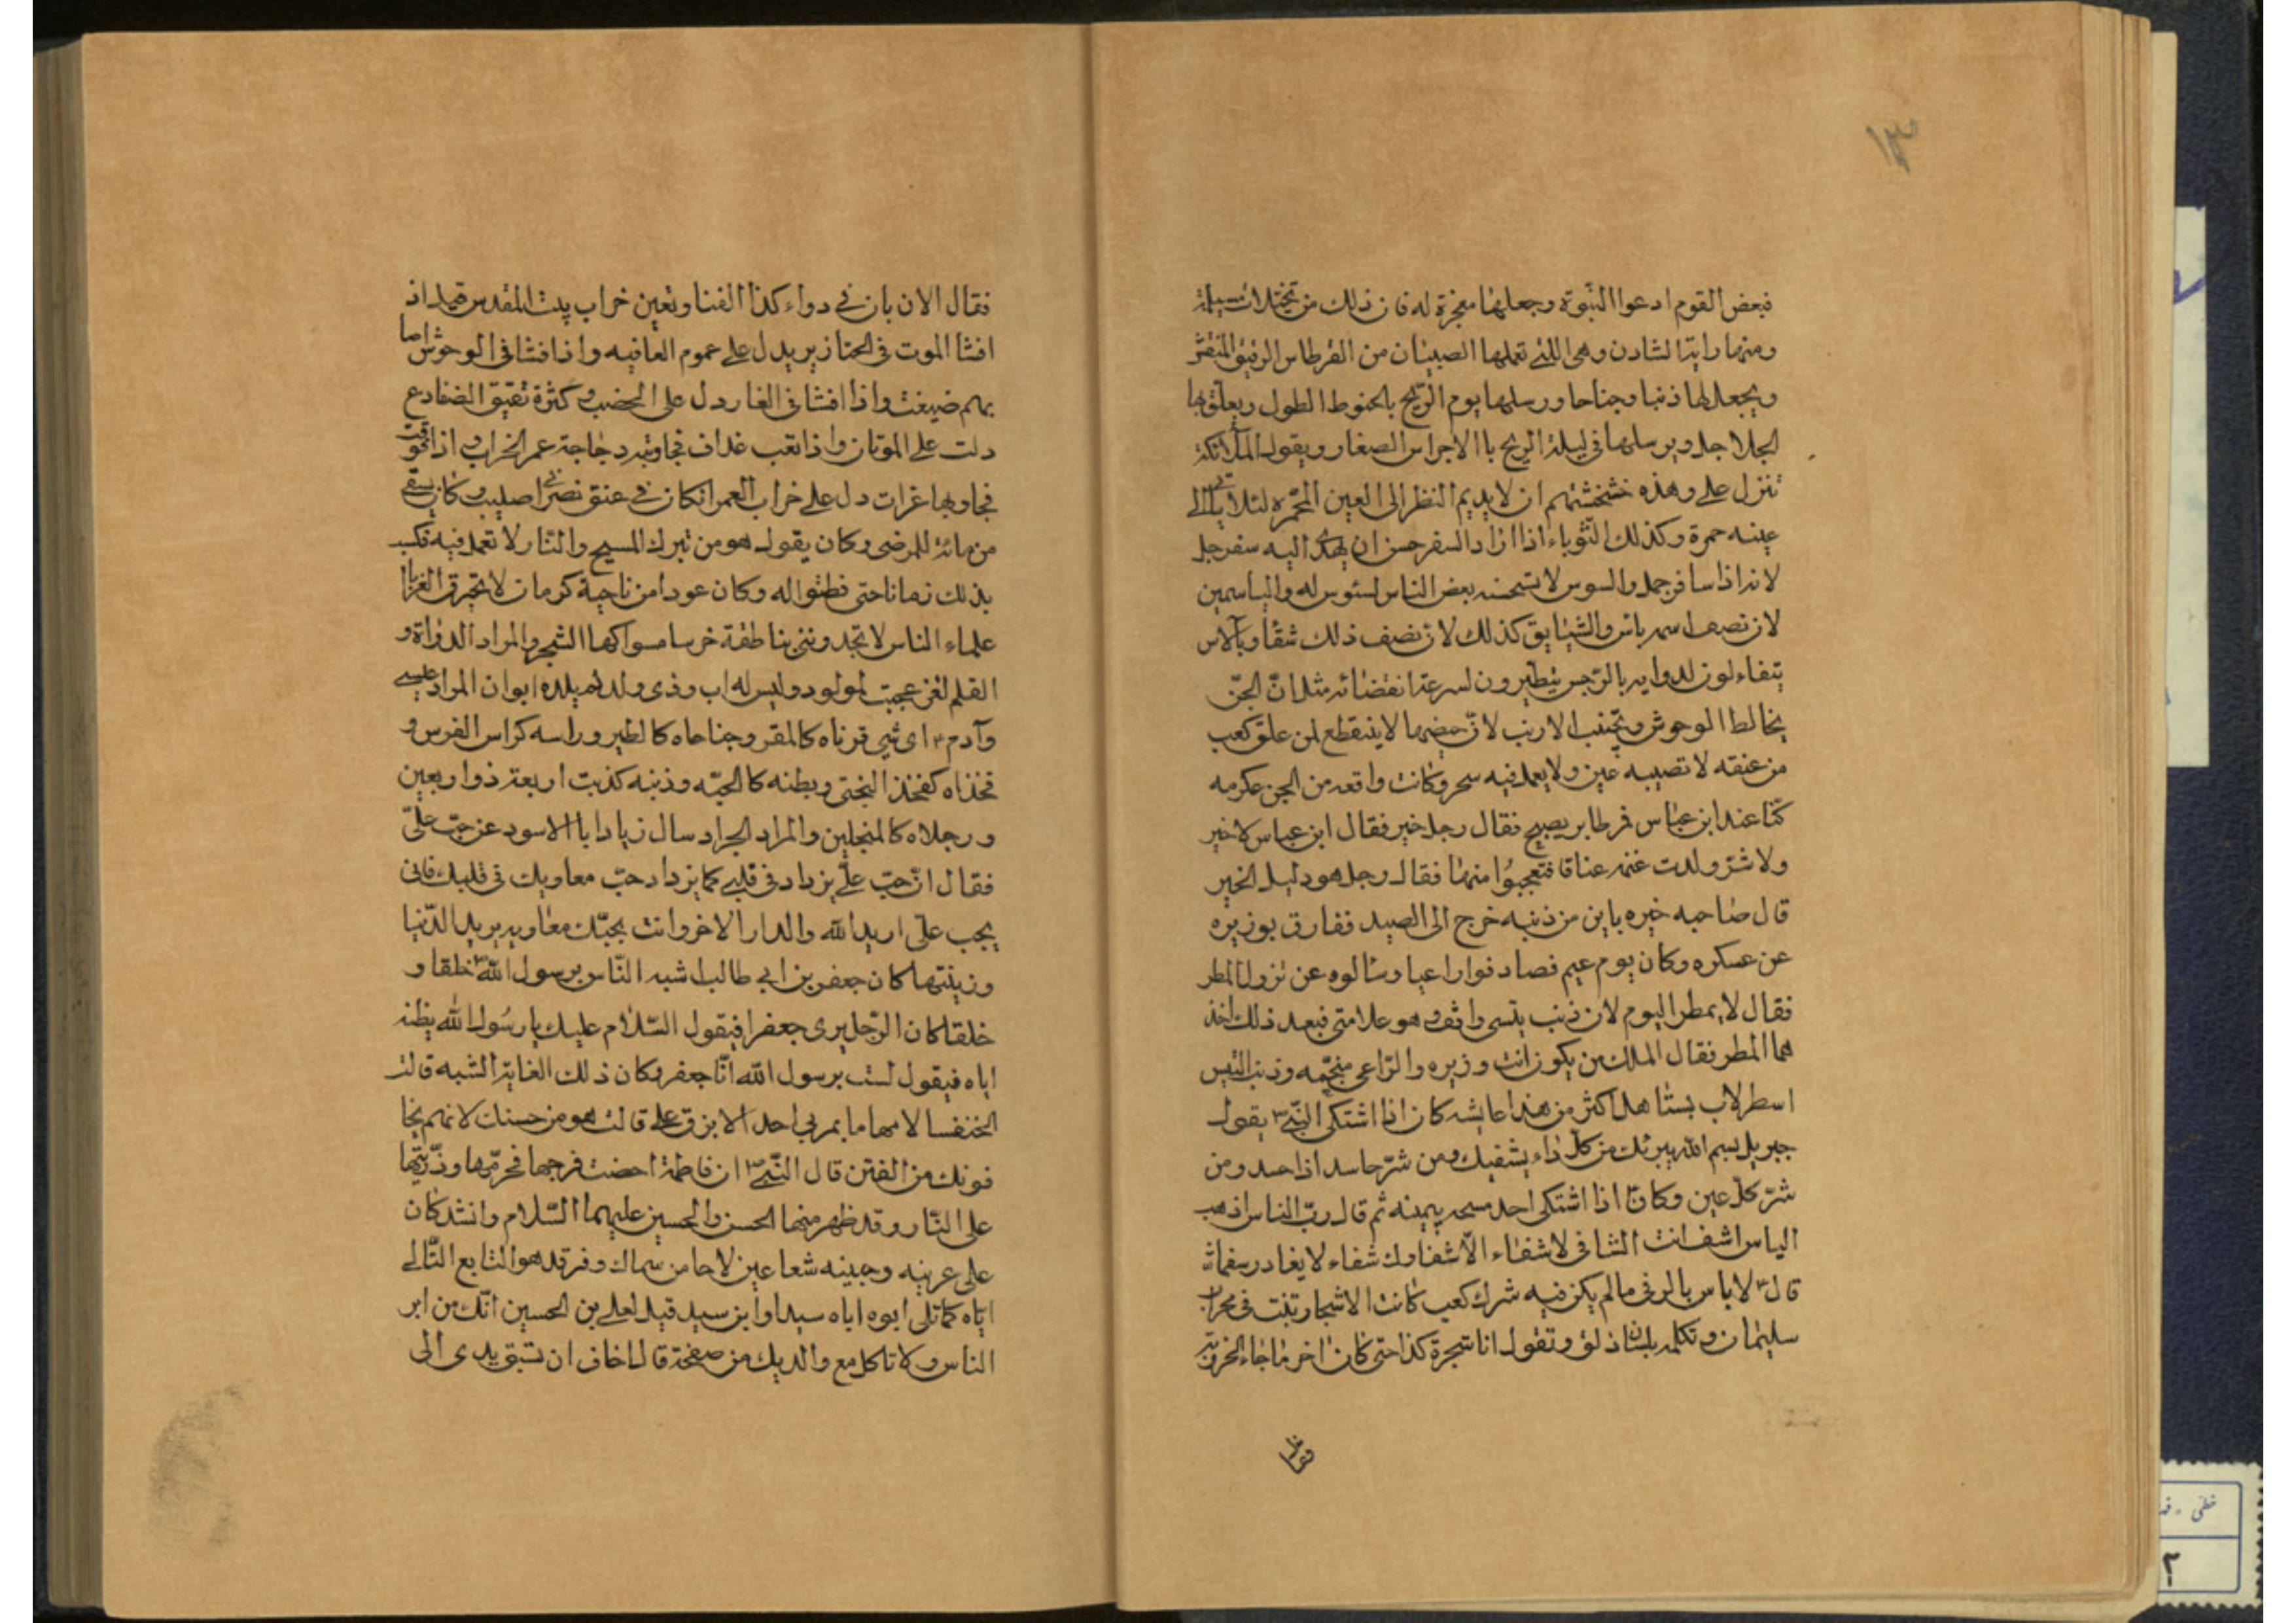 ١٣
فبعض القوم ادعوا النبوة وجعلها معجزة له فان ذلك من تخيلات مسيلمة
ومنها راية الشادن وهى اللتى تعملها الصبيان من القرطاس الرقيق المنقش
ويجعل لها ذنبا وجناحا ورسلها يوم الريح بالخيوط الطول ويعلق بها
الجلاجل ويرسلها فى ليلة الريح باالاجراس الصغار ويقول الملائكة
تنزل على وهذه خشخشتهم ان لا يديم النظر الى العين المحمره لئلا الى
عينه حمرة وكذلك الثوباء اذا اراد السفر حسن ان يهدى اليه سفرجل
لانه اذا سافر جل والسوس لا تستحسنه بعض الناس لسئوس له والياسمين
لان نصف اسمه ياس والشقايق كذلك لان نصف ذلك شقا وبالاس
يتفاءلون لدوامه بالنرجس يتطيرون لسرعة انقضائه مثل ان الجن
يخالط الوحوش وتجتنب الارنب لان حيضها لا ينقطع لمن علق كعب
من عنقه لا تصيبه عين ولا يعمل فيه سحر وكانت واقعه من الجن عكرمه
كنا عند ابن عباس فرطا بر يصيح فقال رجل خير فقال ابن عباس لا خير
ولا شر ولدت غنمه عناقا فتعجبوا منها فقال رجل هو دليل الخير
قال صاحبه خيره باين من ذنبه خرج الى الصيد ففارق بوزيره
عن عسكره وكان يوم غيم فصادفوا راعيا وسالوه عن نزول المطر
فقال لا يمطر اليوم لان ذنب يتسى واقف وهو علامتى فبعد ذلك اخذ
هما المطر فقال الملك من يكون انت وزيره والراعى منجمه وذنب التيس
اسطرلاب يستاهل اكثر من هذا عايشه كان اذا اشتكى النبى يقول
جبريل بسم الله يبرئك من كل داء يشفيك ومن شر حاسد اذا حسد ومن
شر كل عين وكان اذا اشتكى احد مسحه بيمينه ثم قال رب الناس اذهب
الباس اشف انت الشافى لا شفاء الا شفاوك شفاء لا يغادر سقما
قال لا باس بالرقى مالم يكن فيه شرك كعب كانت الاشجار تنبت فى محراب
سليمان وتكلمه بلسان ذلق وتقول انا شجرة كذا حتى كان اخر ما جاء الخروبة
فقال
فقال الان بان فى دواء كذا الفنا وتعين خراب بيت المقدس قيل اذ
افشا الموت فى الخنازير يدل على عموم العافيه واذا فشا فى الوحوش اصا
بهم ضيغت واذا افشا فى الفار دل على الخصب وكثرة نقيق الضفادع
دلت على الموتان واذا نعب غداف فجاوبته دجاجة عمر الخراب واذا
فجاوبها غراب دل على خراب العمران كان فى عنق نصرانى اصليب وكان يسقى
من مائه للمرضى وكان يقول هو من تبرك المسيح والنار لا تعمل فيه فكسب
بذلك زمانا حتى فطنوا له وكان عودا من ناحية كرمان لا تحرق
علماء الناس لا تجدوننى بناطقة خرسا مسواكها الشجر والمراد الدواة و
القلم لغز عجبت لمولود وليس له اب وذى ولد لم يلده ابوان المراد عيسى
وآدم اى شى قرناه كالمقر وجناحاه كالطير وراسه كراس الفرس و
فخذاه كفخذ البختى وبطنه كالحيه وذنبه كذنب اربعة ذو اربعين
ورجلاه كالمنجلين والمراد الجراد سال زيادا با الاسود عن حب على
فقال ان حب على يزداد فى قلبى كما يزداد حب معاويه فى قلبك فانى
يحب على اريد الله والدار الاخر وانت بحبك معاويه يريد الدنيا
وزينتها كان جعفر بن ابى طالب اشبه الناس برسول الله خلقا و
خلقا كان الرجل يرى جعفرا فيقول السلام عليك يا رسول الله يظنه
اياه فيقول لست برسول الله انا جعفر وكان ذلك الغاية الشبه قالت
الخنفسا لامها ما يمر بى احد الا بزق على قالت هو من حسنك لانهم يخا
فونك من الفتن قال النبى ان فاطمة احصنت فرجها فحرمها وذريتها
على النار وقد ظهر منها الحسن والحسين عليهما السلام وانشد كان
على عرنينه وجبينه شعاعين لاحا من سماك وفرقد هو التابع التالى
اياه كما تلى ابوه اباه سيدا وابن سيد قيل لعلى بن الحسين انك من ابر
الناس ولا تاكل مع والديك من صفحة قال اخاف ان تسبق يدى الى
خطى
٢